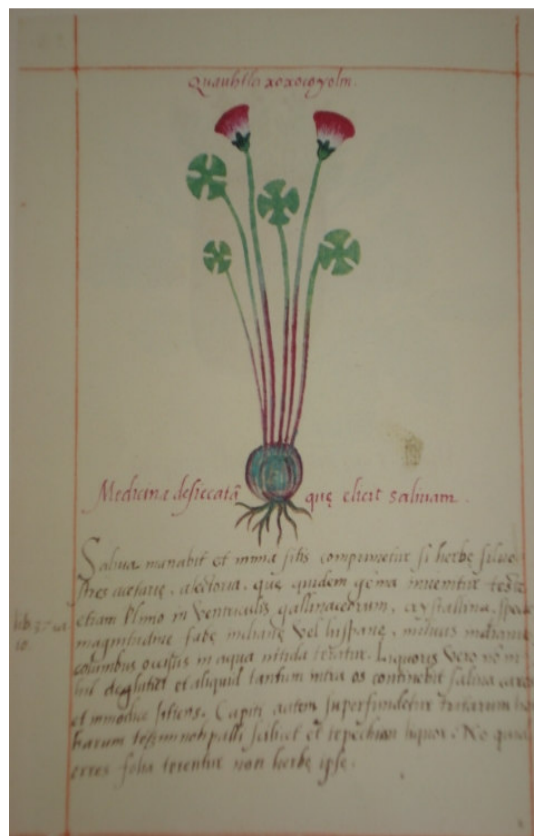 Quauhtla xoxocoyolin.
Medicina desiccatā quę elicit salivam.
Saliva manabit et nimia sitis comprimetur si herbę silve-
stres acetarię, alectoria, quę quidem gēma invenitur teste
etiam Plinio in ventriculis gallinaceorum, crystallina specie
lib. 37. ca
10.
magnitudine fabę indianę vel hispanę, milvus indianus,
columbus occisus in aqua nitida teratur. Liquoris vero
deglutiet et aliquid tantum intra os continebit saliva carens
et immodice sitiens. Capiti autem superfundetur tritarum her
barum scilicet et liquor. Ne quid
erres folia terentur non herbę ipsę.